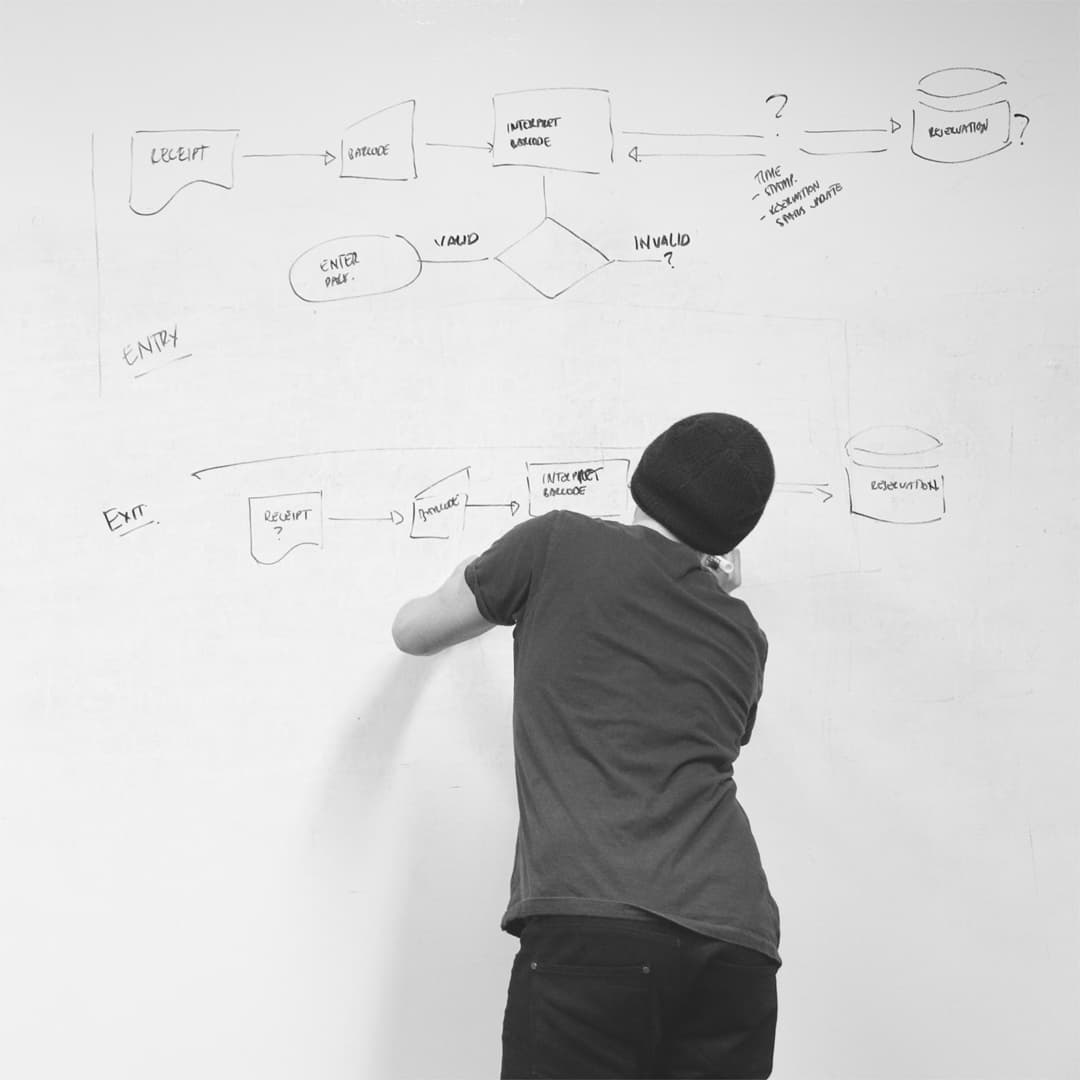 RECEIPT
BARCODE
INTERPRET
BARCODE
?
TIME
- STAMP.
- RESERVATION
STATUS UPDATE
RESERVATION
?
VALID
INVALID
?
ENTER
PARK.
ENTRY
EXIT.
RECEIPT
?
BARCODE
INTERPRET
BARCODE
RESERVATION